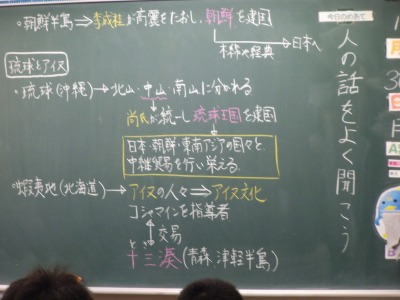 ・朝鮮半島→李成桂が高麗をたおし、朝鮮を建国
木綿や経典→日本へ
琉球とアイヌ
・琉球(沖縄)→北山・中山・南山に分かれる
尚氏が統一し琉球王国を建国
日本・朝鮮・東南アジアの国々と
中継貿易を行い栄える
・蝦夷地(北海道)→アイヌの人々⇒アイヌ文化
コシャマインを指導者
交易
十三湊(青森・津軽半島)
とさ
今日のめあて
人の話をよく聞こう
月
日